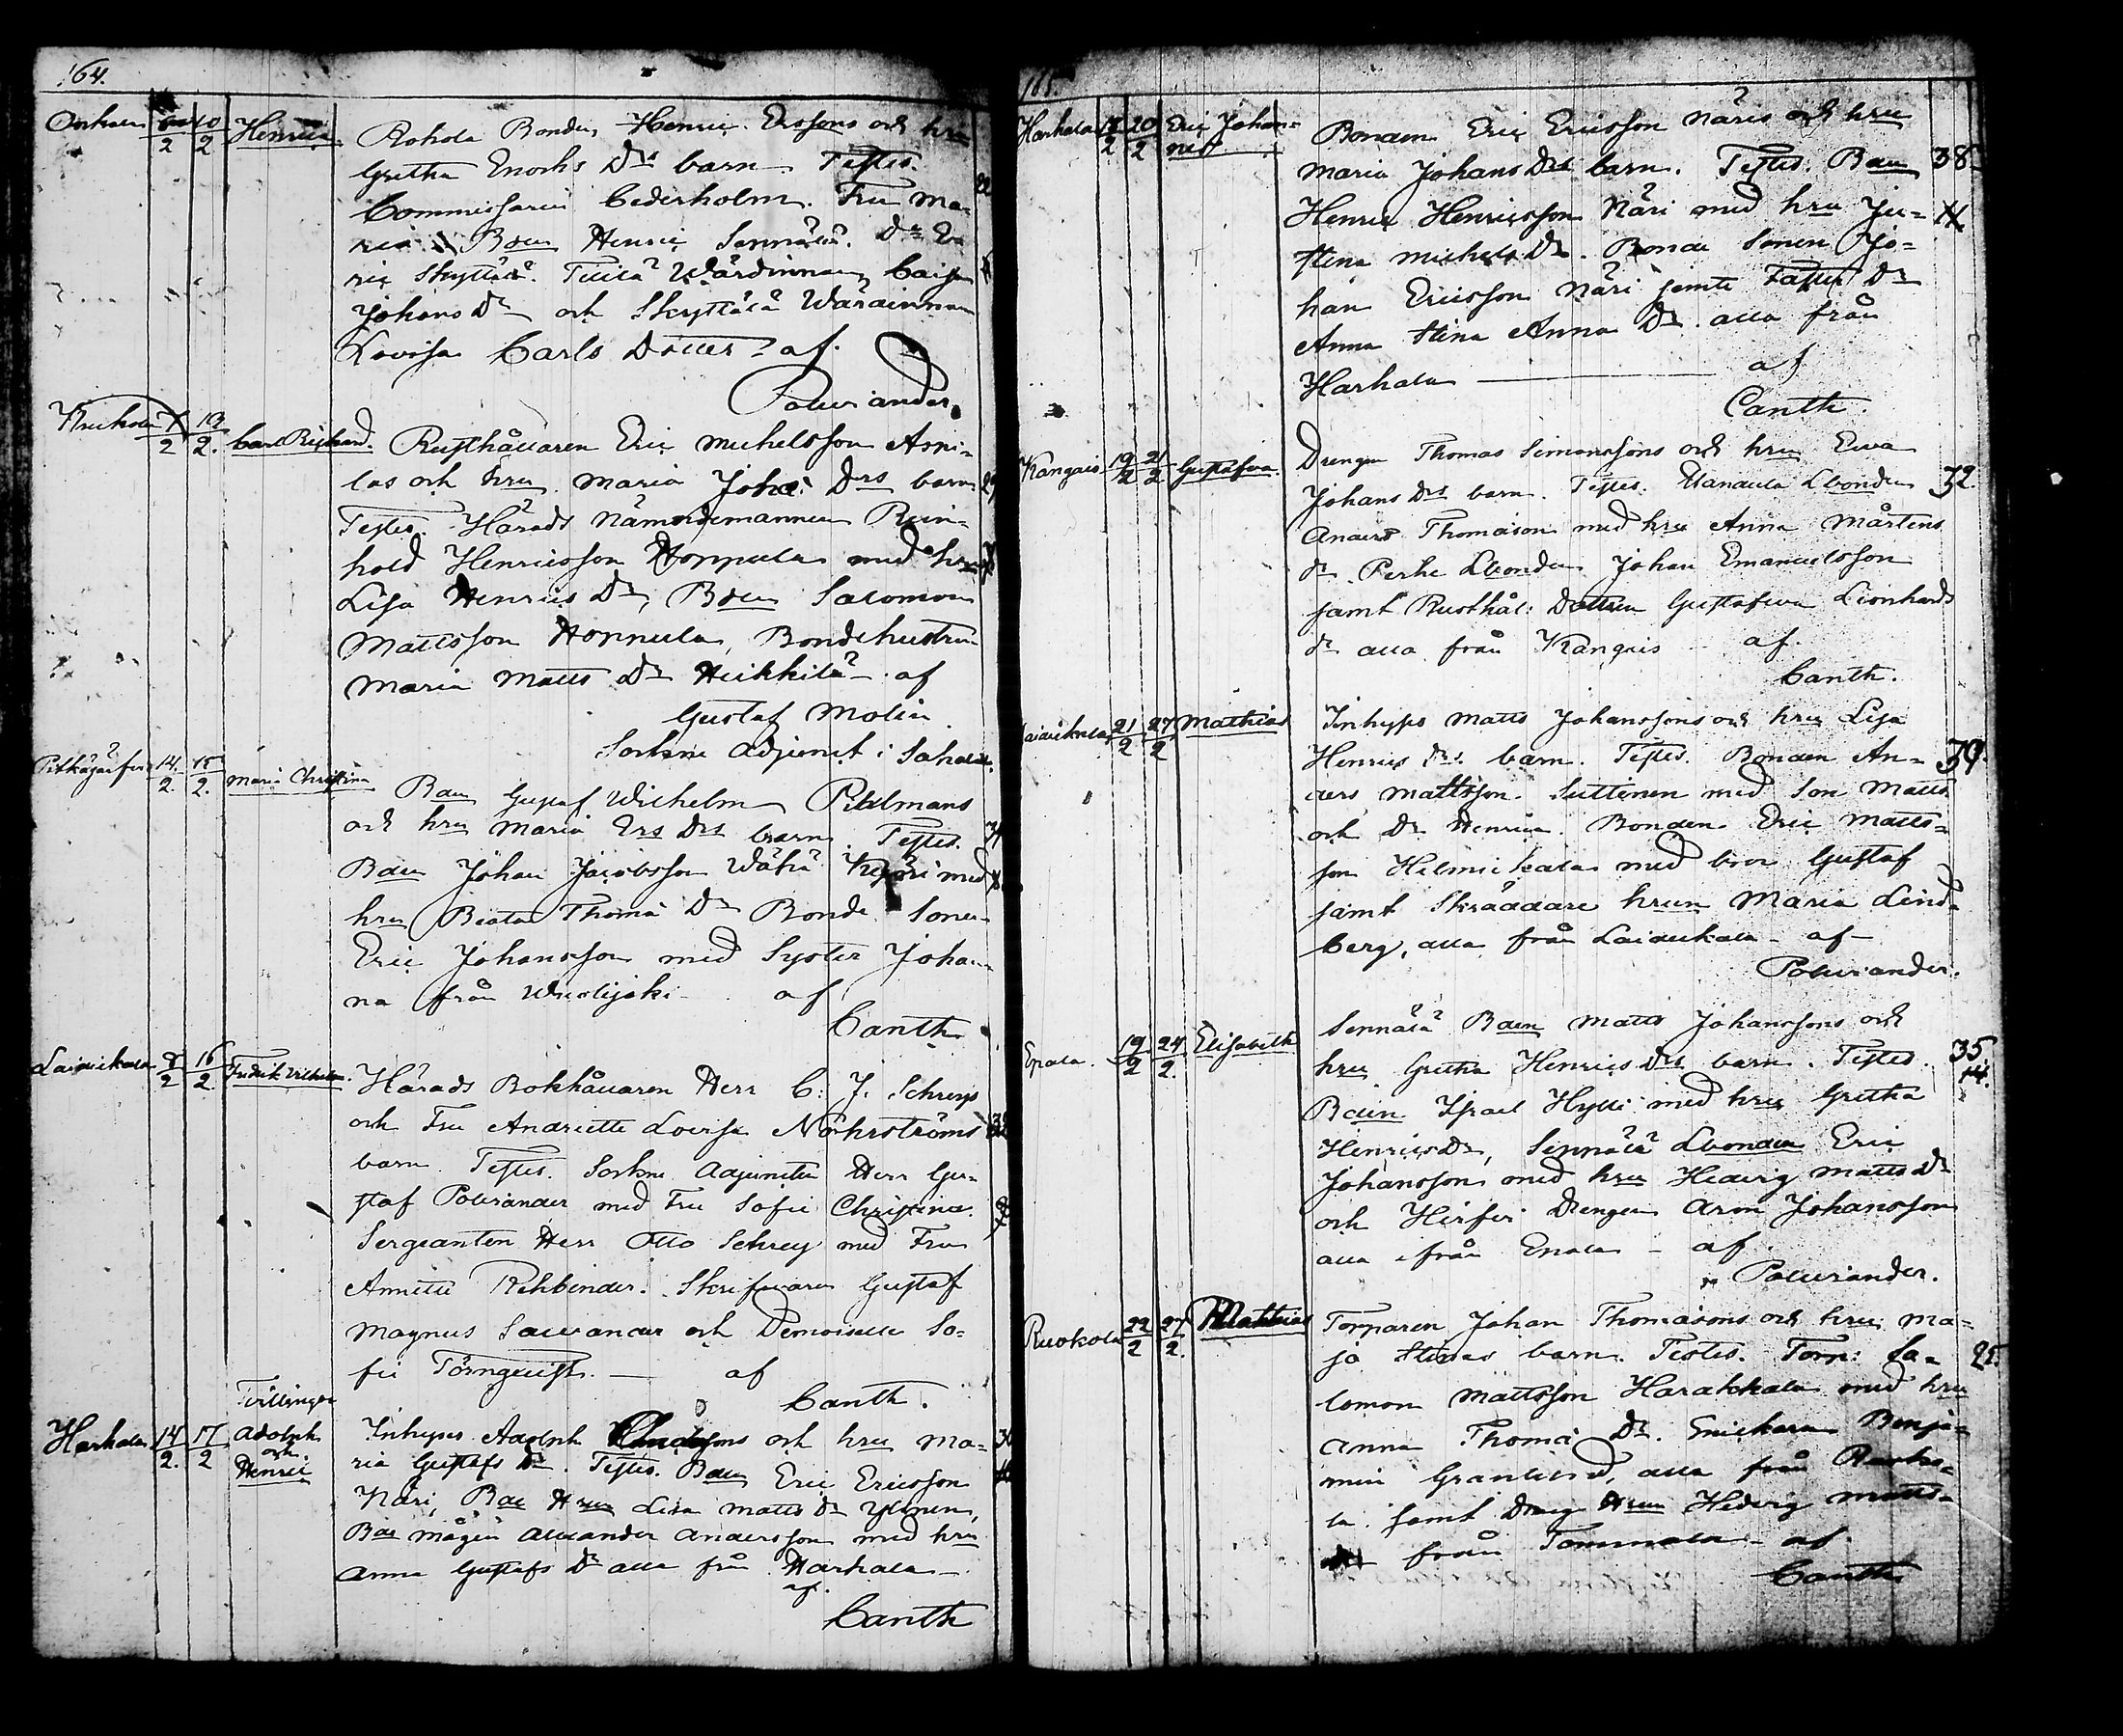 164.
Onkala 10/2 Henrica. Rohola Bonden Henric Erssons och hru
Gretha Enochs Drs barn Testes.
Commissarien Cederholm. Fru Ma-
ria Bden Henric Seppälä. Dr Eva
ric Skyttälä. Tuila Wärdinnan Caisa
Johans Dr och Skyttälä Wärdinnan
Lovisa Carls Dotter af.
Polviander.
7/2 13/2. Carl Richard. Rusthållaren Eric Michelsson Asni-
las och hru Maria Joha: Drs barn 29
Testes. Härads Nämndemannen Rein-
hold Henricsson Hoppula med hru
Lisa Henrics Dr, Bden Salomon
Mattsson Hoppula, Bondehustru
Maria Matts Dr Heikkilä af
Gustaf Molin
Sockne Adjunct i Sahala.
Pitkäjärfvi 14/2. 15/2. Maria Christina Bden Gustaf Wilhelm Pihlmans
och hru Maria Ers Drs barn. Testes. 31
Bden Johan Jacobsson Wähä Kyöri med
hru Beata Thomæ Dr Bonde Sonen
Eric Johansson med Syster Johan-
na från Wuolijoki af
Canth
Laidikala 8/2 16/2 Fredrik Vilhelm. Härads Bokhållaren Herr C: J. Schreys
och Fru Andriette Lovisa Nöhrströms
barn. Testes. Sockne Adjuncten Herr Gu-
staf Polviander med Fru Sofie Christina.
Sergeanten Herr Otto Schrey med Fru
Annette Rehbinder. Skrifvaren Gustaf
Magnus Sawander och Demoiselle So-
fie Törnqvist. — af
Canth.
Tvillingar
Harhala 14/2. 17/2 Adolph och Henric Inhyses Adolph och hru Ma- 30
ria Gustafs Dr. Testes. Bden Eric Ericsson
Näri, Bde Hrun Lisa Matts Dr Ylinen,
Bde mågen Alexander Andersson med hru
Anna Gustafs Dr alla från Harhala —
af.
Canth
165.
Harhala 18/2 20/2 Eric Johan-
nes Bonden Eric Ericsson Näris och hru
Maria Johans Drs barn. Testes. Bden 38
Henric Henricsson Näri med hru Ju-
stina Michels Dr. Bonde Sonen Jo-
han Ericsson Näri jemte Faster Dr
Anna Stina Anna Dr. alla från
Harhala — af
Canth.
Kangais 19/2 21/2 Gustafva. Drengen Thomas Simonssons och hru Ewa
Johans Drs barn. Testes. Mandula Lbonden 32.
Anders Thomasson med hru Anna Mårtens
dr. Perhe Lbonden Johan Emanuelsson
samt Rusthål: Dottren Gustafva Lionhards
dr alla från Kangais af.
Canth.
Laidikala 21/2 27/2 Mathias Inhyses Matts Johanssons och hru Lisa
Henrics Drs barn. Testes. Bonden An- 39.
ders Mattsson Suttinen med Son Matts
och Dr Henrica. Bonden Eric Matts-
son Helmickala med bror Gustaf
samt Skräddare hrun Maria Lind-
berg, alla från Laidikala af
Polviander.
Epaala. 19/2 24/2. Elisabeth Seppälä Bden Matts Johanssons och
hru Gretha Henrics Drs barn. Testes. 35
Bden Israel Hylli med hru Gretha
Henrics Dr, Seppälä Lbonden Eric
Johansson med hru Hedvig Matts Dr
och Hirfvi Drengen Aron Johansson
alla ifrån Epaala — af
Polviander.
Ruokola 22/2 27/2. Mathias Torparen Johan Thomasons och hru Ma-
ja Stinas barn. Testes. Torp: Sa- 25.
lomon Mattsson Harakkala med hru
Anna Thomæ Dr. Snickaren Benja-
min Granlund, alla från Ruoko-
la. samt Dreng Hrun Hedvig Matts-
från Tommola — af
Canth